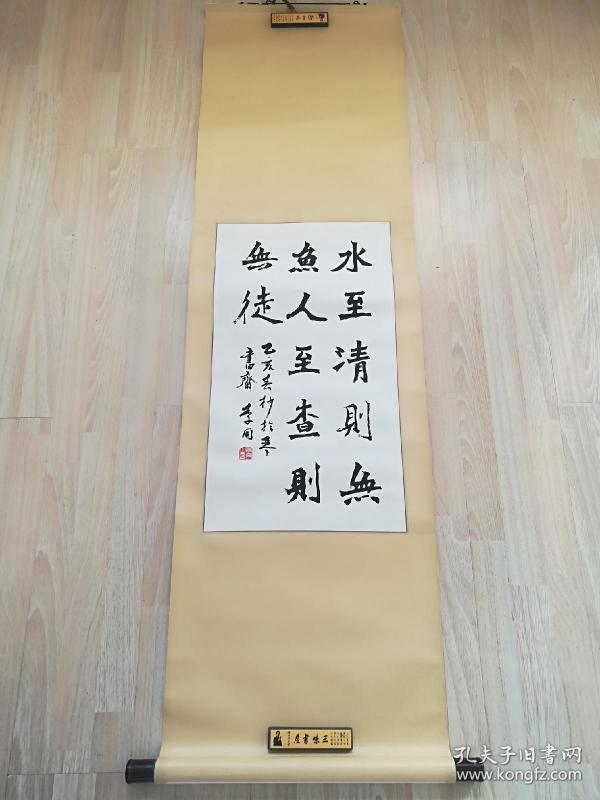 水至清則無
魚人至查則
無徒
乙亥春抄於琴
書齋 李周
三味書屋
孔夫子旧书网
www.kongfz.com